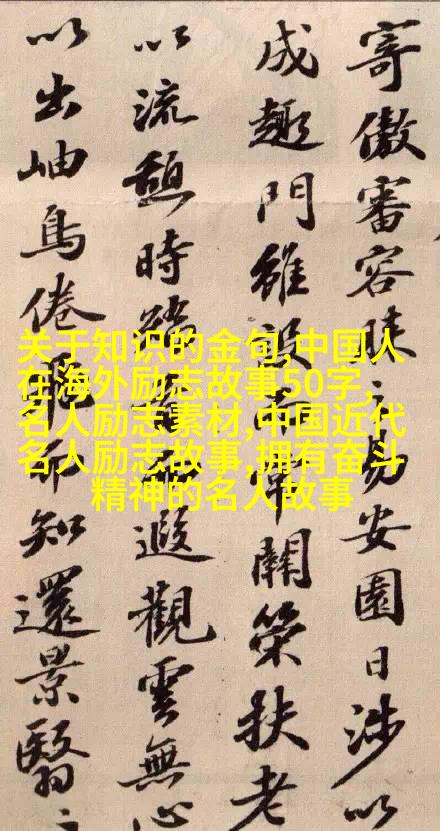 寄傲審容膝之易安園日涉以
成趣門雖設而常關策扶老
以流憩時矯首而遐觀雲無心
以出岫鳥倦飛而知還景翳〻
关于知识的金句,中国人
在海外励志故事50字,
名人励志素材,中国近代
名人励志故事,拥有奋斗
精神的名人故事